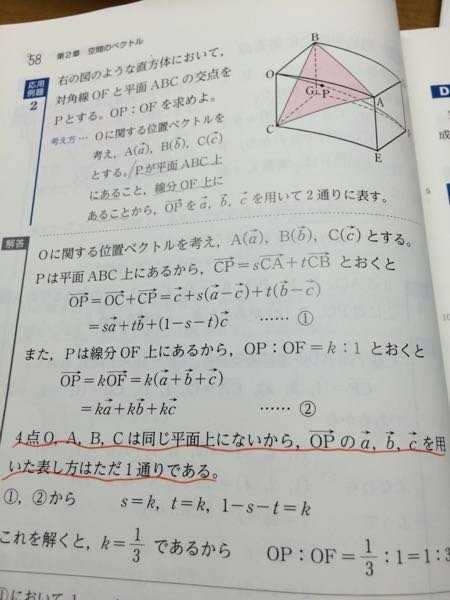 58 第2章 空間のベクトル
応用例題 2
右の図のような直方体において，
対角線 OF と平面 ABC の交点を
P とする。OP：OF を求めよ。
考え方… O に関する位置ベクトルを
考え，A(a→)，B(b→)，C(c→)
とする。P が平面 ABC 上
にあること，線分 OF 上に
あることから，OP→ を a→, b→, c→ を用いて 2 通りに表す。
B
O
G
P
A
C
E
解答
O に関する位置ベクトルを考え，A(a→)，B(b→)，C(c→) とする。
P は平面 ABC 上にあるから，CP→=sCA→+tCB→ とおくと
OP→=OC→+CP→=c→+s(a→−c→)+t(b→−c→)
=sa→+tb→+(1−s−t)c→ …… ①
また，P は線分 OF 上にあるから，OP：OF=k：1 とおくと
OP→=kOF→=k(a→+b→+c→)
=ka→+kb→+kc→ …… ②
4点 O，A，B，C は同じ平面上にないから，OP→ の a→, b→, c→ を用
いた表し方はただ 1 通りである。
①，② から s=k，t=k，1−s−t=k
これを解くと，k=1/3 であるから OP：OF=1/3：1=1：3
①において
D
成
5
10